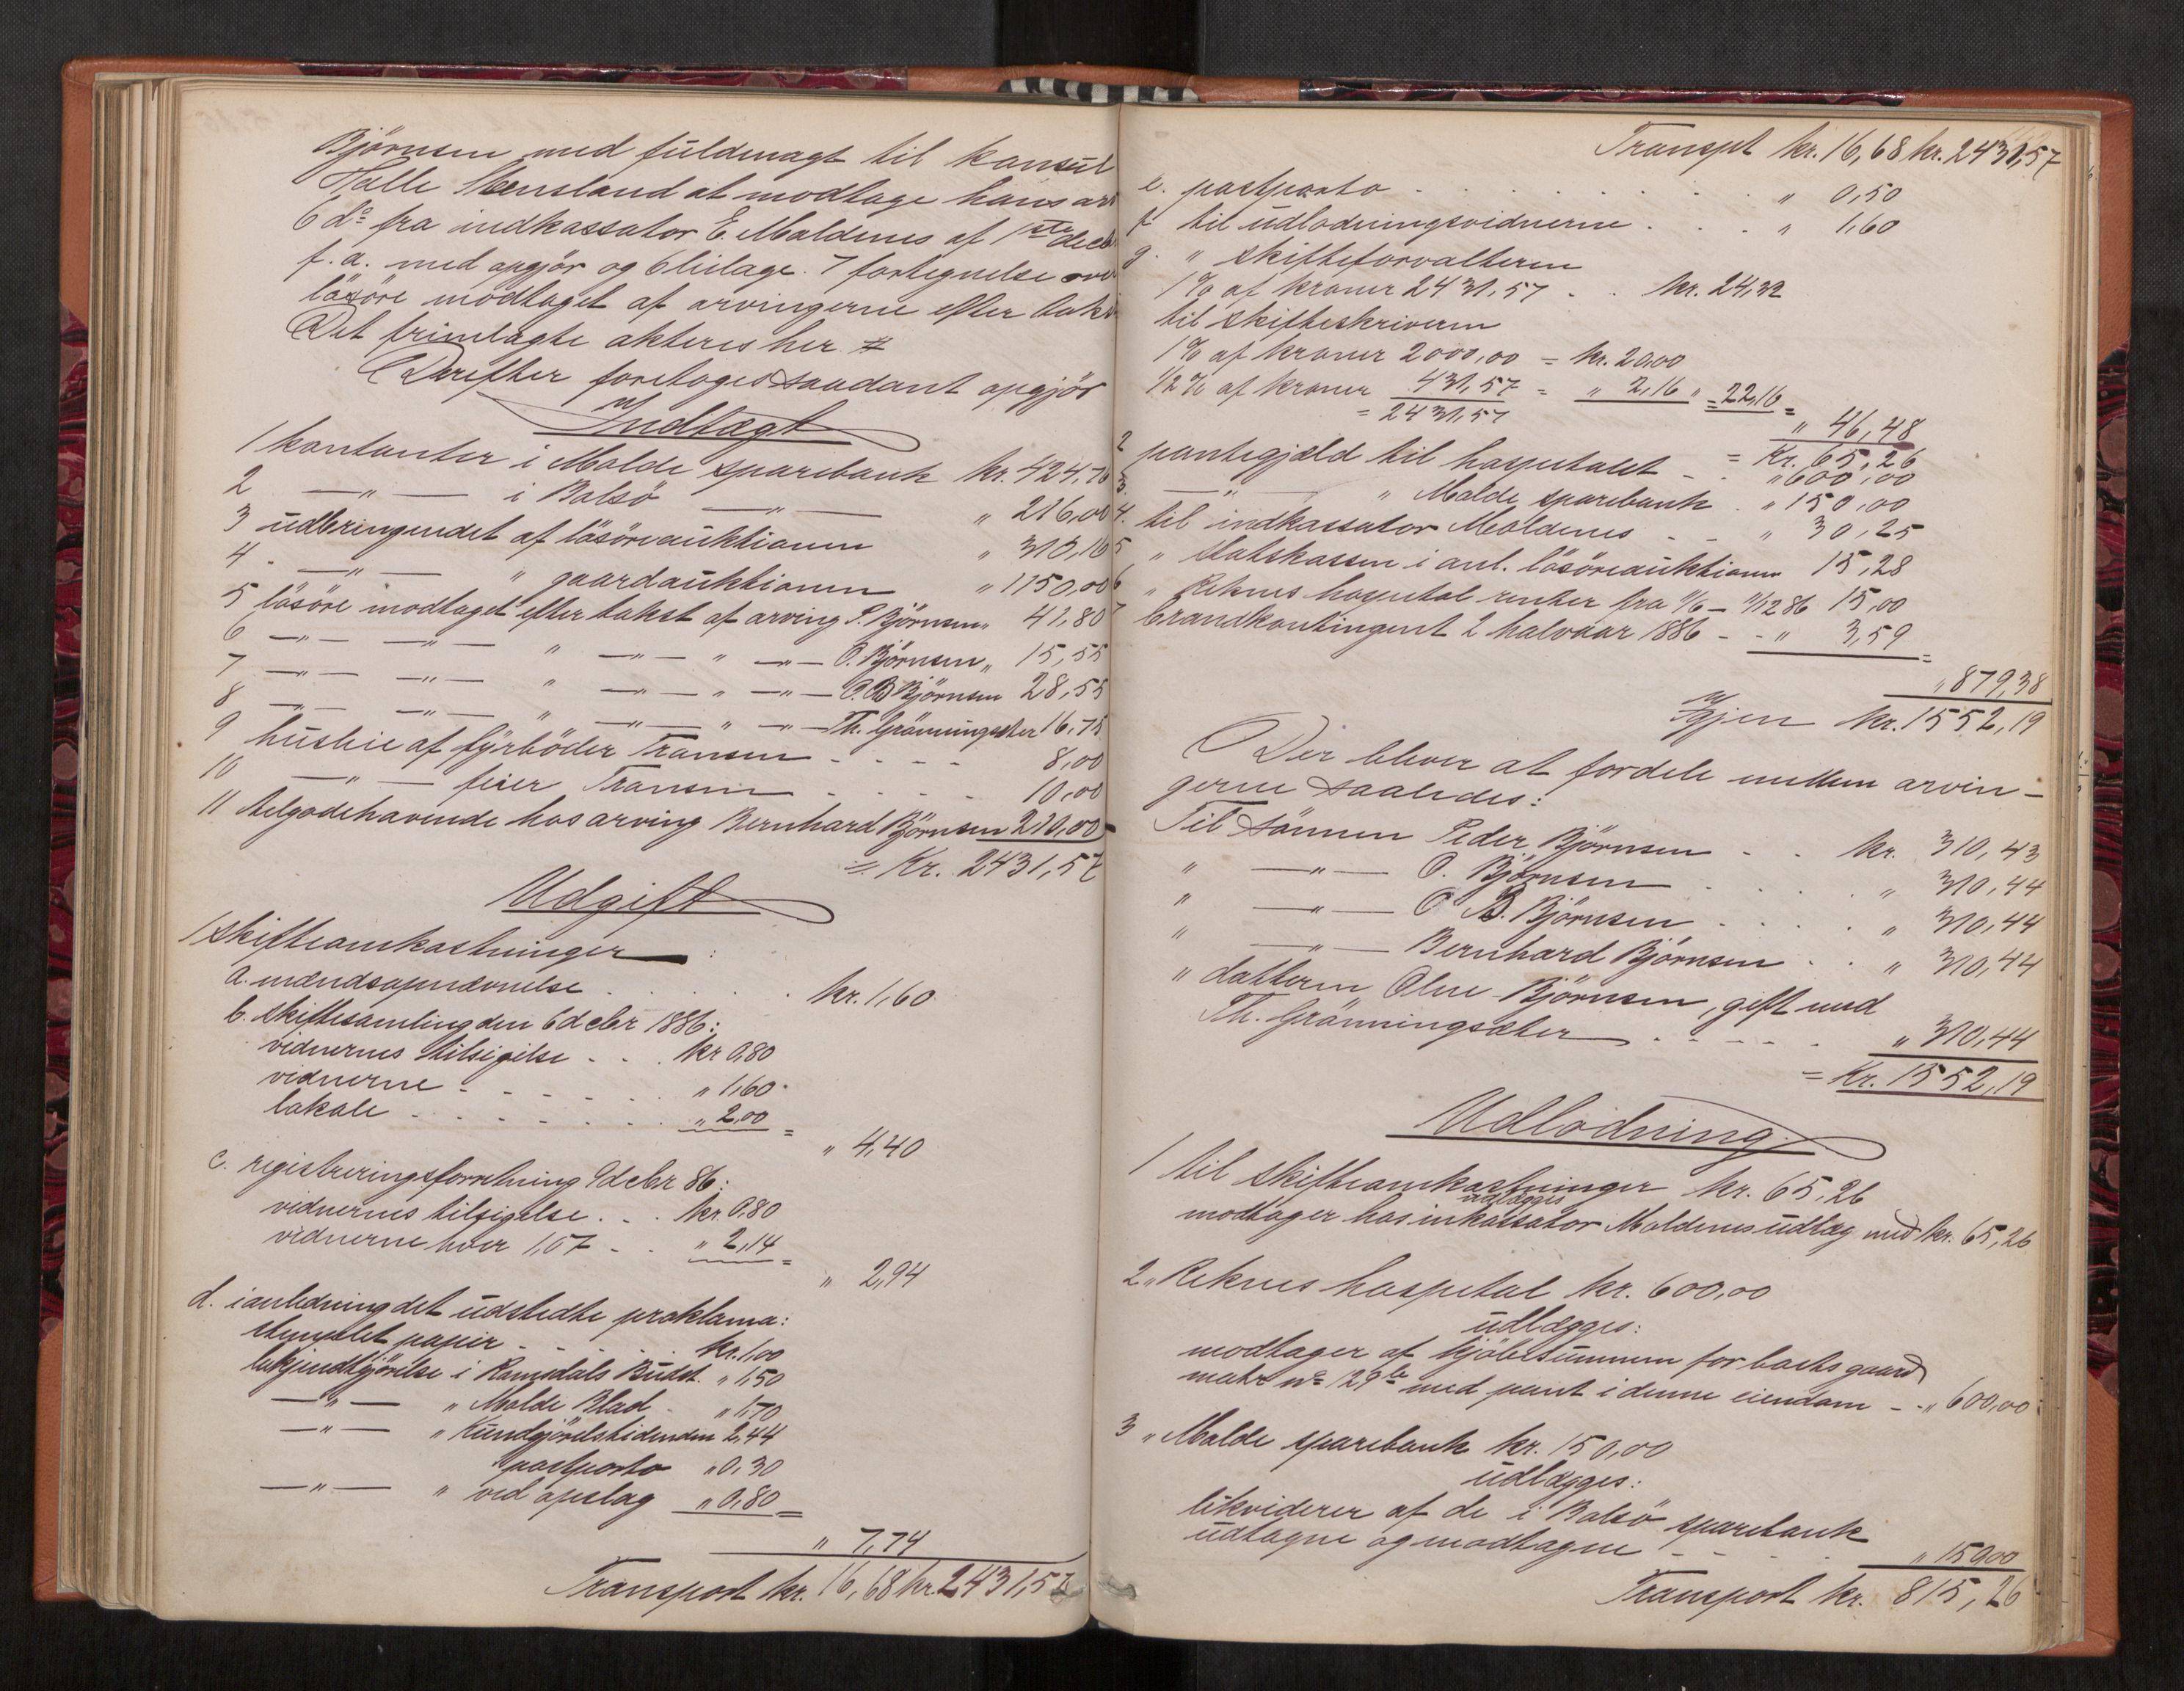 Björnsen med fuldmagt til konsul
Halle at modtage hans ar
6 do fra indkassator E. Moldenes af 1ste decb
f. a. med opgjör og 6 bilage. 7 fortegnelse ove
lösöre modtaget af arvingerne efter takst
Det fremlagte akteres her #
Derefter foretoges saadant opgjör
Indtægt
1 kontanter i Molde sparebank kr. 424,76
2 —"— i Bolsö —"— " 216,00
3 udbringendet af lösöreauktionen " 310,16
4 —"— " gaardauktionen " 1150,00
5 lösöre modtaget efter takst af arving P. Björnsen " 41,80
6 —"— —"— " —"— " —"— O. Björnsen " 15,55
7 —"— —"— " —"— " —"— O. B Björnsen 28,55
8 —"— —"— " —"— " —"— Th. Grönningsæter 16,75
9 husleie af fyrböder Transen - - - - 8,00
10 —"— feier Transen - - - - 10,00
11 tilgodehavende hos arving Bernhard Björnsen 210,00
= Kr. 2431,57
Udgift
1 skifteomkostninger :
a. mændsopnævnelse . . . . . kr. 1,60
b. skiftesamling den 6 decbr 1886:
vidnernes tilsigelse - . . kr 0.80
vidnerne - - - - - - " 1,60
lokale - - - - - - " 2,00 =
" 4,40
c. registreringsforretning 9 decbr 86:
vidnernes tilsigelse . . . kr 0.80
vidnerne hver 1,07 - . " 2,14 =
" 2,94
d. i anledning det udstedte proklama:
stemplet papir - - - - kr. 1,00
bekjendtgjörelse i Romsdals Budst. " 1,50
—"— " Molde Blad - " 1,70
—"— " Kundgjörelstidenden 2,44
postporto " 0,30
—"— " ved opslag " 0,80 =
" 7,74
Transport kr. 16,68 kr. 2431,57
Transpt kr. 16,68 kr. 2431,57
e. postporto . . . . . . . " 0,50
f til udlodningsvidnerne . . . " 1,60
g. " skifteforvalteren
1% af kroner 2431,57 . . kr. 24,32
til skifteskriveren
1% af kroner 2000,00 = kr. 20,00
1/2% af kroner 431,57 = " 2,16 " = 22,16 =
= 2431,57
" 46,48
= Kr. 65,26
2 pantegjæld til hospitalet - - " 600,00
3. —"— " Molde sparebank . " 150,00
4. til indkassator Moldenes - - " 30,25
5 " Statskassen i anl. lösöreauktionen 15,28
6 " Reknes hospital renter fra 11/6 - 11/12 86 15,00
7 brandkontingent 2 halvaar 1886 - - " 3,59 =
" 879,38
Igjen kr. 1552,19
Der bliver at fordele mellem arvin-
gerne saaledes:
Til sönnen Peder Björnsen - . kr. 310,43
" —"— O. Björnsen . . . . " 310,44
" —"— O B. Björnsen . . . . " 310,44
" —"— Bernhard Björnsen . . " 310,44
" datteren Oline Björnsen, gift med
Th. Grönningsæter . - - - - . " 310,44
= Kr. 1552,19
Udlodning
1 til skifteomkostninger kr. 65,26
udlægges
modtager hos inkassator Moldenes udlæg med kr. 65,26
2 " Reknes hospital kr. 600,00
udlægges:
modtager af kjöbesummen for boets gaard
matr no 129 med pant i denne eiendom - - " 600,00
3 " Molde sparebank kr. 150,00
udlægges:
likviderer af de i Bolsö sparebank
udtagne og modtagne - - - - " 150,00
Transport kr. 815,26